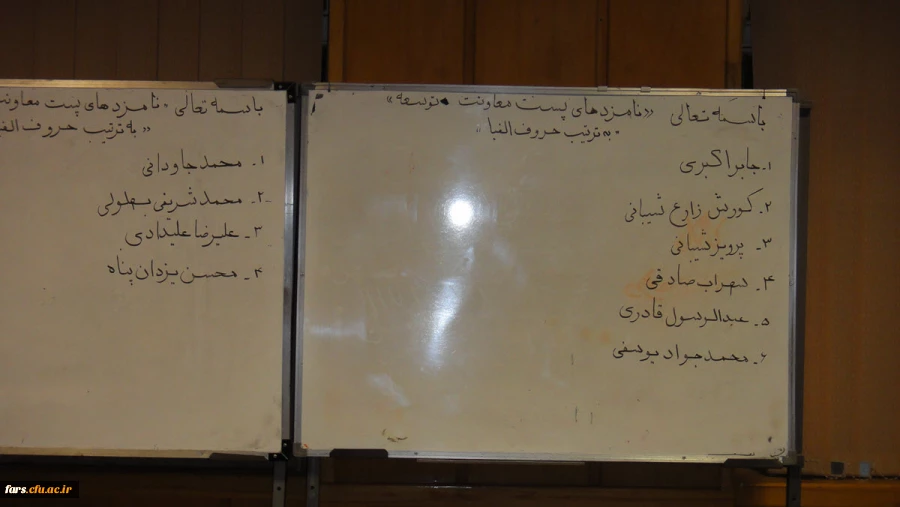 باسمه تعالی «نامزدهای پست معاونت توسعه»
«به ترتیب حروف الفبا»
۱. جابر اکبری
۲. کورش زارع شیبانی
۳. پرویز شیبانی
۴. سهراب صادقی
۵. عبدالرسول قادری
۶. محمدجواد یوسفی
باسمه تعالی «نامزدهای پست معاونت
«به ترتیب حروف الفبا
۱. محمد جاودانی
۲. محمد شریفی بهلولی
۳. علیرضا علیدادی
۴. محسن یزدان پناه
fars.cfu.ac.ir